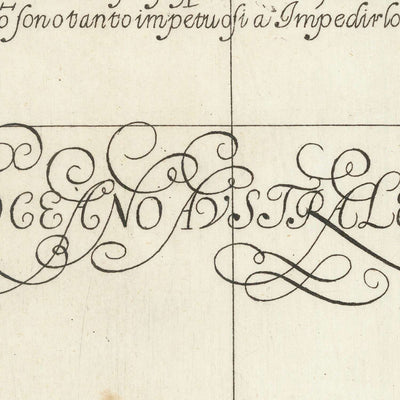 ò sono tanto impetuosi à Impedirlo
OCEANO AVSTRALE